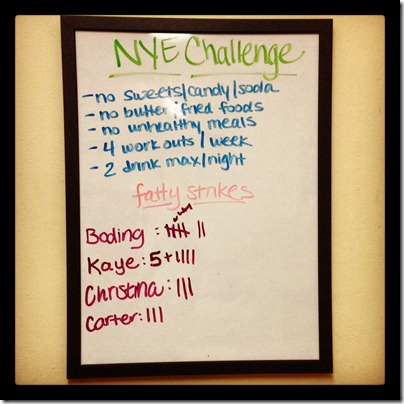 NYE Challenge
- no sweets/candy/soda
- no butter/fried foods
- no unhealthy meals
- 4 workouts/week
- 2 drink max/night
fatty strikes
Boding : |||| ||
Kaye: 5+||||
Christina: |||
Carter: |||